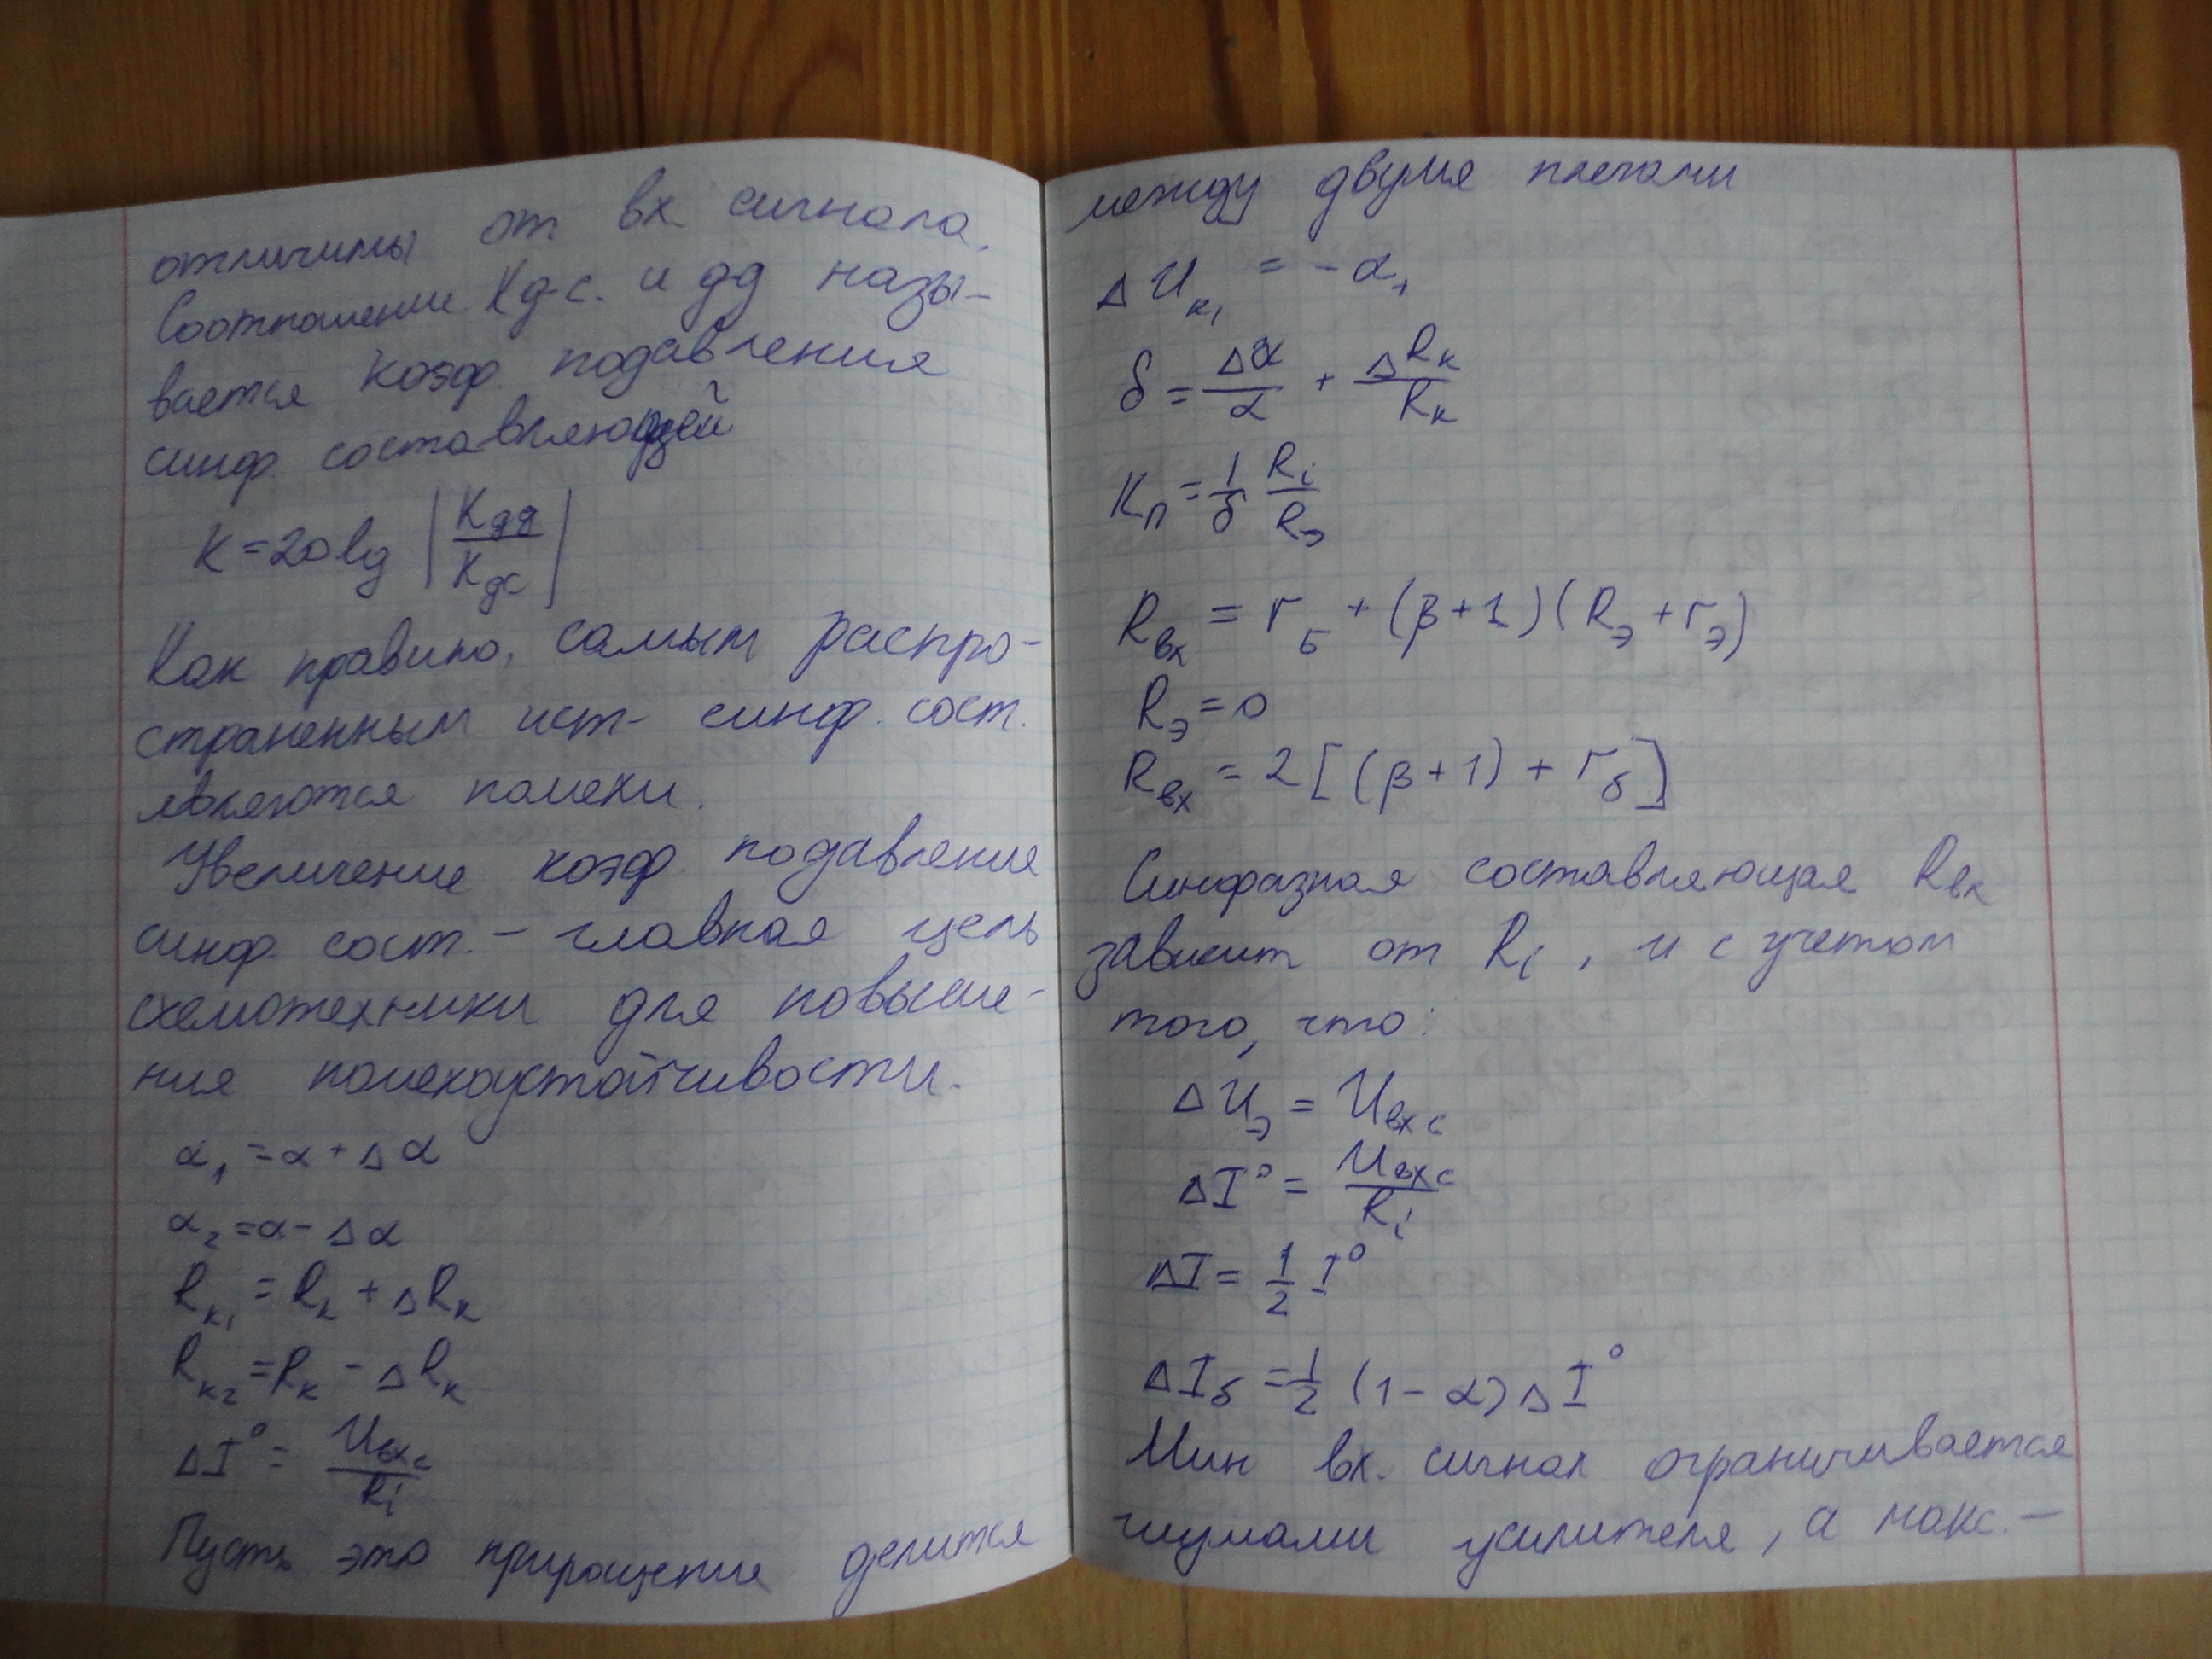 отличимы от вх. сигнала.
Соотношение Кд.с. и дд назы-
вается коэф. подавления
синф. составляющей
K = 20 lg |Kдд / Kдс|
Как правило, самым распро-
страненным ист- синф. сост.
являются помехи.
Увеличение коэф. подавления
синф. сост. – главная цель
схемотехники для повыше-
ния помехоустойчивости.
α₁ = α + Δα
α₂ = α - Δα
Rк₁ = Rк + ΔRк
Rк₂ = Rк - ΔRк
ΔI⁰ = Uвхс / Ri
Пусть это приращение делится
между двумя плечами
ΔUк₁ = -α₁
δ = Δα/α + ΔRк/Rк
Kп = 1/δ Ri/Rэ
Rвх = rб + (β+1)(Rэ + rэ)
Rэ = 0
Rвх = 2[(β+1) + rб]
Синфазная составляющая Rвх
зависит от Ri, и с учетом
того, что:
ΔUэ = Uвхс
ΔI⁰ = Uвхс / Ri
ΔI = 1/2 I⁰
ΔIб = 1/2 (1-α) ΔI⁰
Мин вх. сигнал ограничивается
шумами усилителя, а макс. –